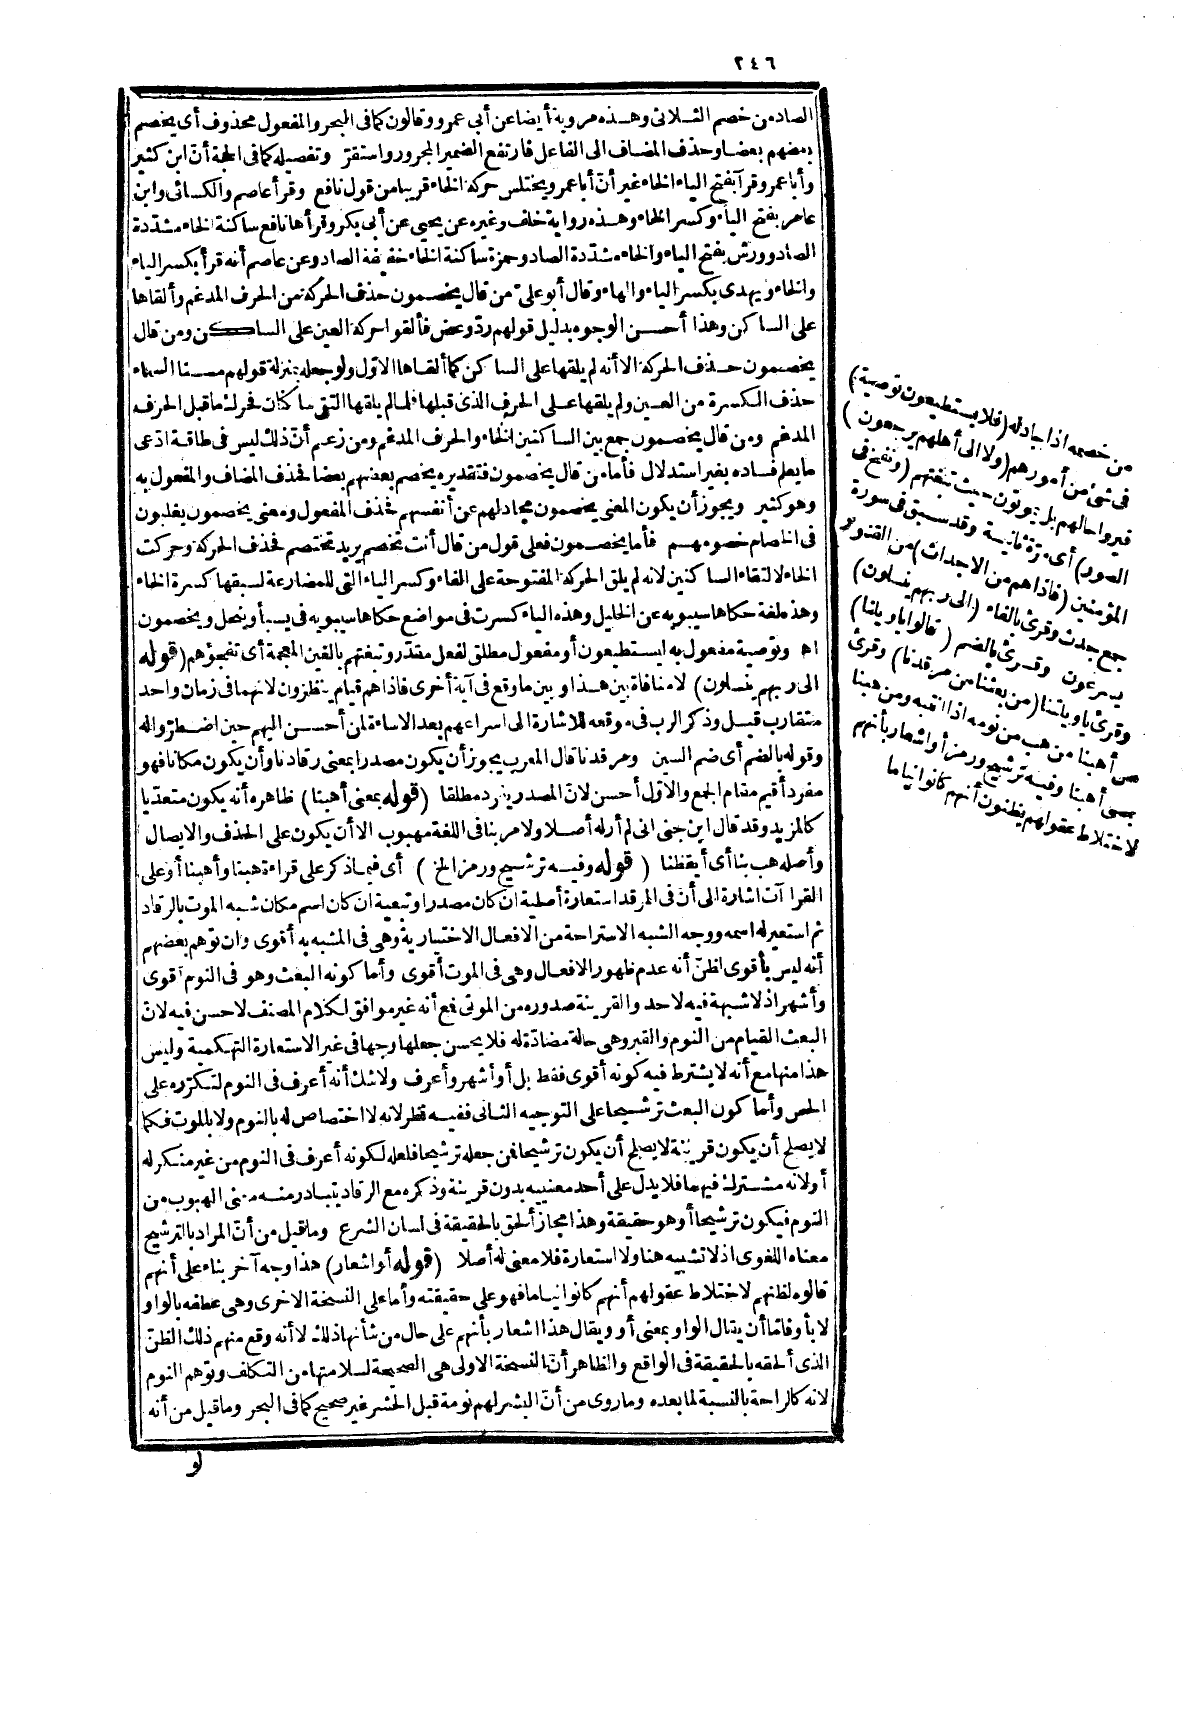 ٢٤٦
الصاد من خصم الثلاثى وهذه مروية أيضا عن أبى عمرو وقالون كما فى البحر والمفعول محذوف أى يخصم
بعضهم بعضا وحذف المضاف الى الفاعل فارتفع الضمير المجرور واستقرّ وتفصيله كما فى الحجة أنّ ابن كثير
وأبا عمرو قرآ بفتح الياء الخاء غير أنّ أبا عمرو يختلس حركة الخاء قريبا من قول نافع وقرأ عاصم والكسائى وابن
عامر بفتح الياء وكسر الخاء وهذه رواية خلف وغيره عن يحيى عن أبى بكر وقرأها نافع ساكنة الخاء مشدّدة
الصاد وورش بفتح الياء والخاء مشدّدة الصاد وحمزة ساكنة الخاء خفيفة الصاد وعن عاصم أنه قرأ بكسر الياء
والخاء ويهدى بكسر الياء والهاء وقال أبو علىّ من قال يخصمون حذف الحركة من الحرف المدغم وألقاها
على الساكن وهذا أحسن الوجوه بدليل قولهم ردّ وعض فألقوا حركة العين على الساكن ومن قال
يخصمون حذف الحركة الا أنه لم يلقها على الساكن كما ألقاها الاوّل ولو جعله بمنزلة قولهم مسنا السماء
حذف الكسرة من العين ولم يلقها على الحرف الذى قبلها فلما لم يلقها التقى ساكنان فحرك ما قبل الحرف
المدغم ومن قال يخصمون جمع بين الساكنين الخاء والحرف المدغم ومن زعم أنّ ذلك ليس فى طاقة ادّعى
ما يعلم فساده بغير استدلال فأما من قال يخصمون فتقديره يخصم بعضهم بعضا فحذف المضاف والمفعول به
وهو كثير ويجوز أن يكون المعنى يخصمون مجادلهم عن أنفسهم فحذف المفعول ومعنى يخصمون يغلبون
فى الخصام خصومهم فأما يخصمون فعلى قول من قال أنت تخصم يريد تختصم فحذف الحركة وحركت
الخاء لالتقاء الساكنين لانه لم يلق الحركة المفتوحة على الفاء وكسر الياء التى للمضارعة لسبقها كسرة الخاء
وهذه لغة حكاها سيبويه عن الخليل وهذه الياء كسرت فى مواضع حكاها سيبويه فى ييبأ ويجل ويخصمون
اه وتوصية مفعول به ليستطيعون أو مفعول مطلق لفعل مقدر وتبغتهم بالغين المعجمة أى تفجؤهم (قوله
الى ربهم ينسلون) لا منافاة بين هذا وبين ما وقع فى آية أخرى فاذا هم قيام ينظرون لانهما فى زمان واحد
متقارب قيل وذكر الرب فى موقعه للاشارة الى اسراعهم بعد الاساءة لمن أحسن اليهم حين اضطرّوا اليه
وقوله بالضم أى ضم السين ومرقدنا قال المعرب يجوز أن يكون مصدرا بمعنى رقادنا وأن يكون مكانا فهو
مفرد أقيم مقام الجمع والاوّل أحسن لانّ المصدر يفرد مطلقا (قوله بمعنى أهبنا) ظاهره أنه يكون متعديا
كالمزيد وقد قال ابن جنى انى لم أر له أصلا ولا مر بنا فى اللغة مهبوب الا أن يكون على الحذف والايصال
وأصله هب بنا أى أيقظنا (قوله وفيه ترشيح ورمز الخ) أى فيما ذكر على قراءة هبنا وأهبنا أو على
القراآت اشارة الى أن فى المرقد استعارة أصلية ان كان مصدرا وتبعية ان كان اسم مكان شبه الموت بالرقاد
ثم استعير له اسمه ووجه الشبه الاستراحة من الافعال الاختيارية وهى فى المشبه به أقوى وان توهم بعضهم
أنه ليس بأقوى لظنّ أنه عدم ظهور الافعال وهى فى الموت أقوى وأما كونه البعث وهو فى النوم أقوى
وأشهر اذ لا شبهة فيه لاحد والقرينة صدوره من الموتى فمع أنه غير موافق لكلام المصنف لا حسن فيه لانّ
البعث القيام من النوم والقبر وهى حالة مضادّة له فلا يحسن جعلها وجها فى غير الاستعارة التهكمية وليس
هذا منها مع أنه لا يشترط فيه كونه أقوى فقط بل أو أشهر وأعرف ولا شك أنه أعرف فى النوم لتكرّره على
الحس وأما كون البعث ترشيحا على التوجيه الثانى ففيه نظر لانه لا اختصاص له بالنوم ولا بالموت فكما
لا يصلح أن يكون قرينة لا يصلح أن يكون ترشيحا فمن جعله ترشيحا فلعله لكونه أعرف فى النوم من غير منكر له
أو لانه مشترك فيهما فلا يدل على أحد معنييه بدون قرينة وذكره مع الرقاد يتبادر منه معنى الهبوب من
النوم فيكون ترشيحا أو هو حقيقة وهذا مجاز ألحق بالحقيقة فى لسان الشرع وما قيل من أنّ المراد بالترشيح
معناه اللغوى اذ لا تشبيه هنا ولا استعارة فلا معنى له أصلا (قوله أو اشعار) هذا وجه آخر بناء على أنهم
قالوه لظنهم لاختلاط عقولهم أنهم كانوا نياما فهو على حقيقته وأما على النسخة الاخرى وهى عطفه بالواو
لا بأو فاما أن يقال الواو بمعنى أو ويقال هذا اشعار بأنهم على حال من شأنها ذلك لا أنه وقع منهم ذلك الظنّ
الذى ألحقه بالحقيقة فى الواقع والظاهر أنّ النسخة الاولى هى الصحيحة لسلامتها من التكلف وتوهم النوم
لانه كالراحة بالنسبة لما بعده وما روى من أنّ البشر لهم نومة قبل الحشر غير صحيح كما فى البحر وما قيل من أنه
لو
من خصمه اذا جادله (فلا يستطيعون توصية)
فى شئ من أمورهم (ولا الى أهلهم يرجعون)
فيروا حالهم بل يموتون حيث تبغتهم (ونفخ فى
الصور) أى مرّة ثانية وقد سبق فى سورة
المؤمنين (فاذا هم من الاجداث) من القبور
جمع جدث وقرئ بالفاء (الى ربهم ينسلون)
يسرعون وقرئ بالضم (قالوا يا ويلنا)
وقرئ يا ويلتنا (من بعثنا من مرقدنا) وقرئ
من أهبنا من هب من نومه اذا انتبه ومن هبنا
بمعنى أهبنا وفيه ترشيح ورمز أو اشعار بأنهم
لاختلاط عقولهم يظنون أنهم كانوا نياما